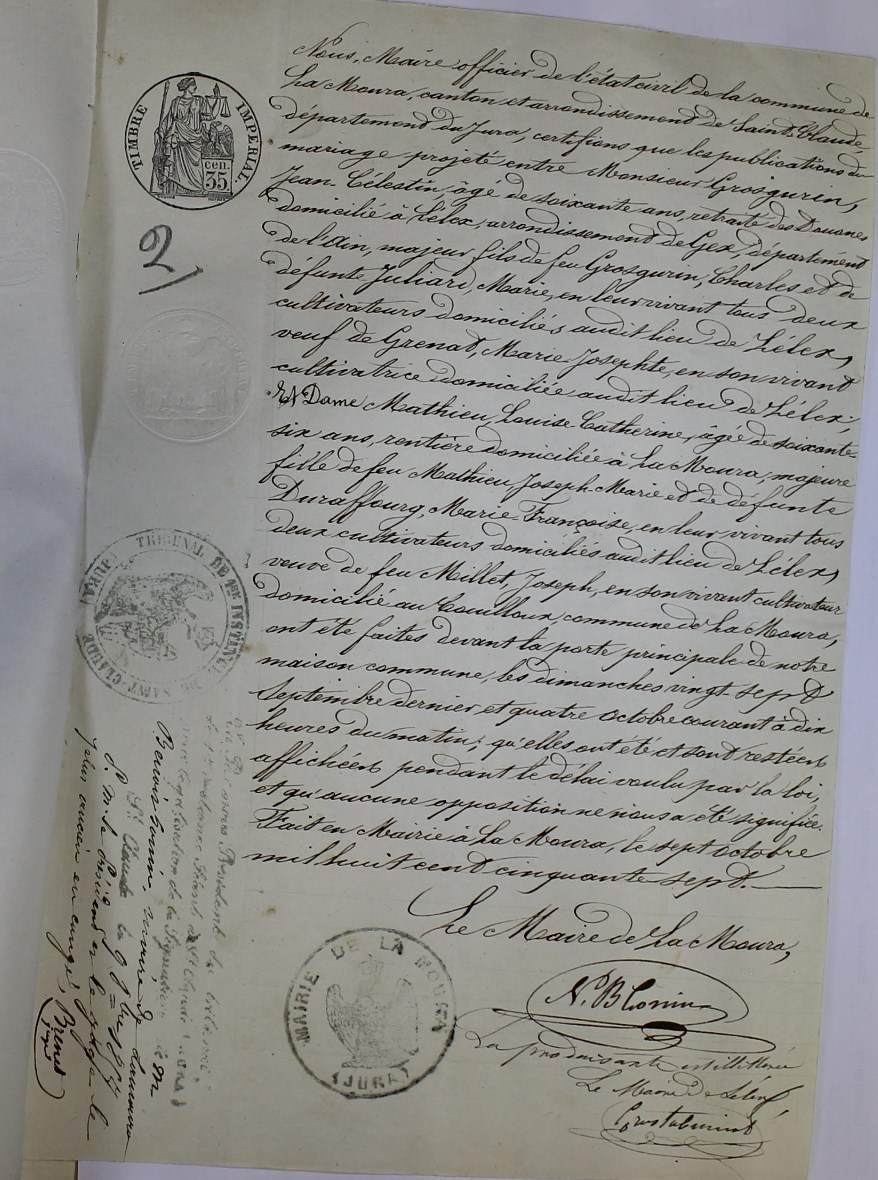 TIMBRE IMPERIAL.
cen.
35
2/
Nous, Maire officier de l'état civil de la commune de
La Moura, canton et arrondissement de Saint-Claude
département du Jura, certifions que les publications du
mariage projeté entre Monsieur Grosgurin,
Jean-Célestin, âgé de soixante ans, retraité des Douanes
domicilié à Lélex, arrondissement de Gex, département
de l'Ain, majeur fils de feu Grosgurin, Charles et de
défunte Juliard, Marie, en leur vivant tous deux
cultivateurs domiciliés audit lieu de Lélex,
veuf de Grenat, Marie-Josephte, en son vivant
cultivatrice domiciliée audit lieu de Lélex;
Et Dame Mathieu, Louise-Catherine, âgée de soixante-
six ans, rentière domiciliée à La Moura, majeure
fille de feu Mathieu, Joseph-Marie et de défunte
Duraffourg, Marie-Françoise, en leur vivant tous
deux cultivateurs domiciliés audit lieu de Lélex,
veuve de feu Millet, Joseph, en son vivant cultivateur
domicilié au Couilloux, commune de La Moura,
ont été faites devant la porte principale de notre
maison commune, les dimanches vingt-sept
Septembre dernier et quatre octobre courant à dix
heures du matin; qu'elles ont été et sont restées
affichées pendant le délai voulu par la loi,
et qu'aucune opposition ne nous a été signifiée.
Fait en Mairie à La Moura, le sept octobre
mil huit cent cinquante sept.
Le Maire de La Moura,
La produisante est illettrée
Le Maire de Lélex,
TRIBUNAL DE 1ERE INSTANCE
DE SAINT-CLAUDE
MAIRIE DE LA MOURA
(JURA)
nous Président du tribunal
de 1ère instance séant à St Claude
légalisation de la signature
St Claude le
plus ancien en congé,